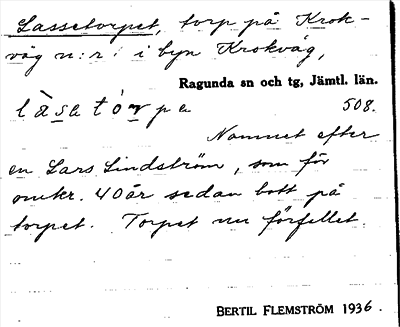 Lassetorpet, torp på Krok-
våg n:r 1 i byn Krokvåg,
Ragunda sn och tg, Jämtl. län.
508.
Namnet efter
en Lars Lindström, som för
omkr. 40 år sedan bott på
torpet. Torpet nu förfallet.
BERTIL FLEMSTRÖM 1936.